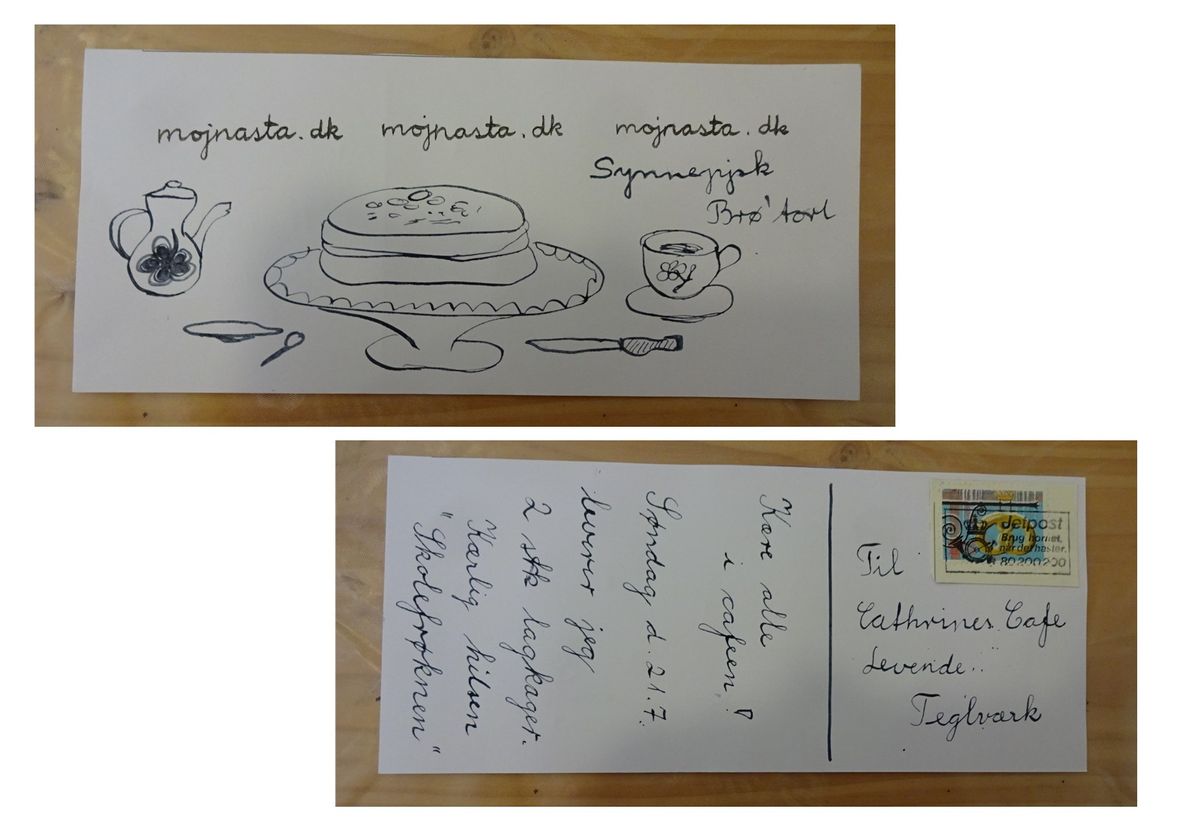 mojnasta.dk mojnasta.dk mojnasta.dk
Synnejysk
Brø'tort
Kære alle
i cafeen!
Søndag d. 21.7.
leverer jeg
2 stk lagkager.
Kærlig hilsen
"Skolefrøknen"
Til
Cathrines Cafe
Levende
Teglværk
Jetpost
Brug hornet,
når det haster.
80 200 200